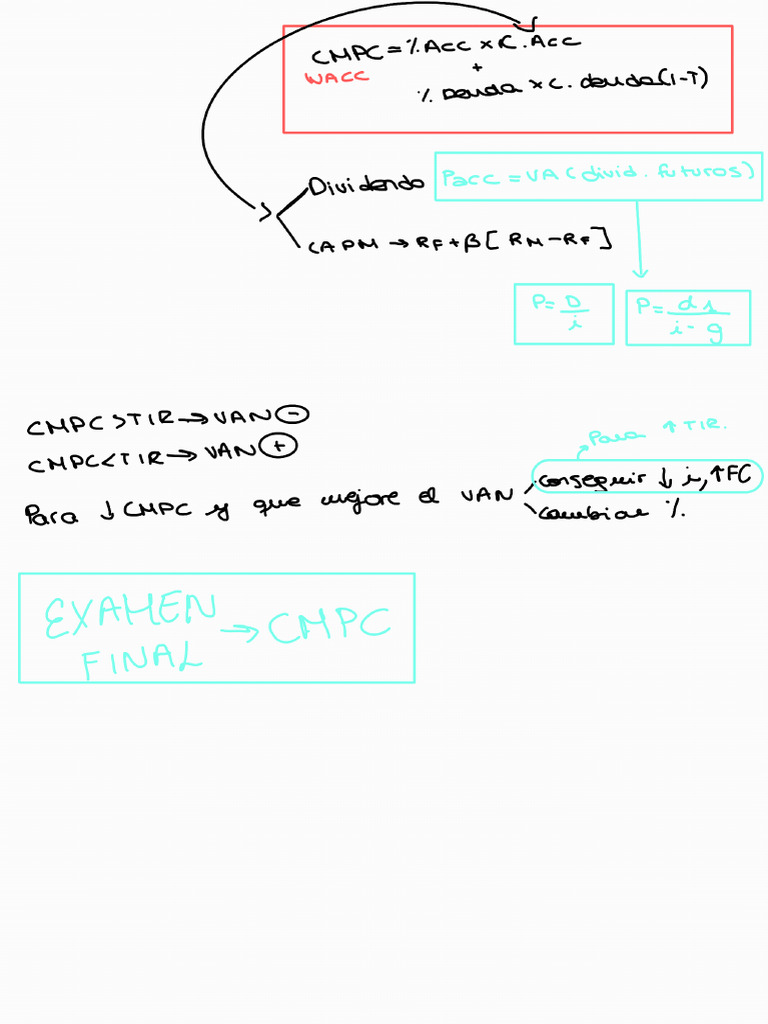 CMPC = % Acc x C. Acc
WACC
+
% Deuda x C. deuda (1-T)
Dividendo
Pacc = VA (divid. futuros)
CAPM → RF + β [ RM - RF ]
P = D / i
P = d1 / i - g
CMPC > TIR → VAN ⊖
CMPC < TIR → VAN ⊕
Para ↑ TIR.
Para ↓ CMPC y que mejore el VAN
conseguir ↓ i, ↑ FC
cambiar %.
EXAMEN FINAL → CMPC